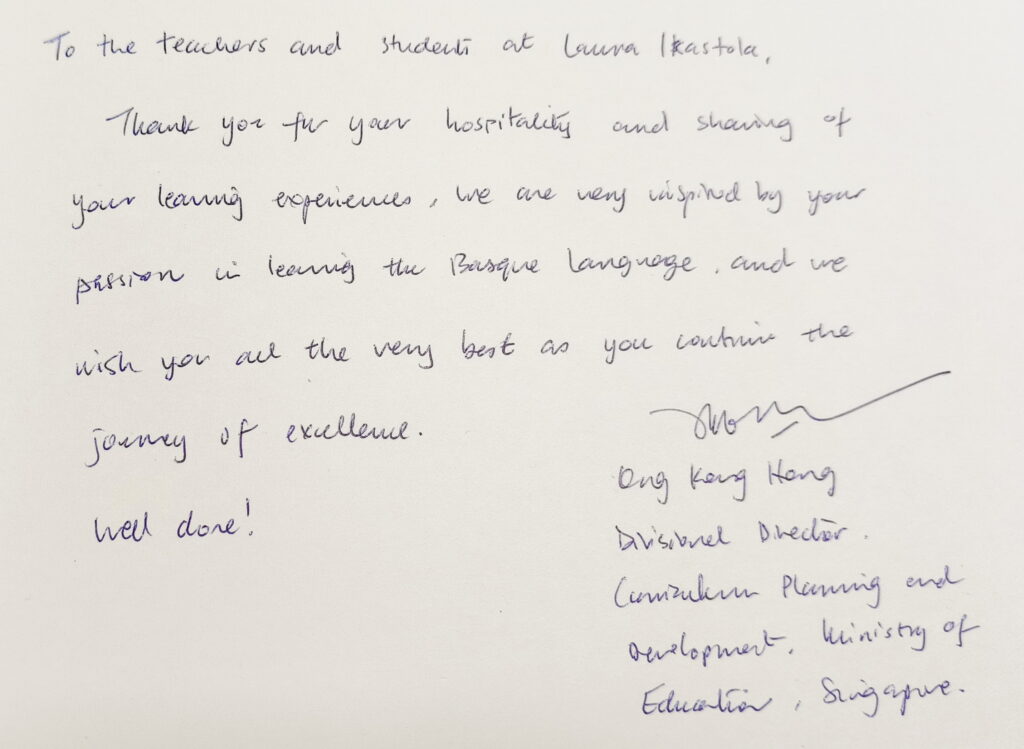 To the teachers and students at Laura Ikastola,
Thank you for your hospitality and sharing of
your learning experiences, we are very inspired by your
passion in learning the Basque language, and we
wish you all the very best as you continue the
journey of excellence.
Ong Kong Hong
Well done!
Divisional Director.
Curriculum Planning and
Development, Ministry of
Education, Singapore.